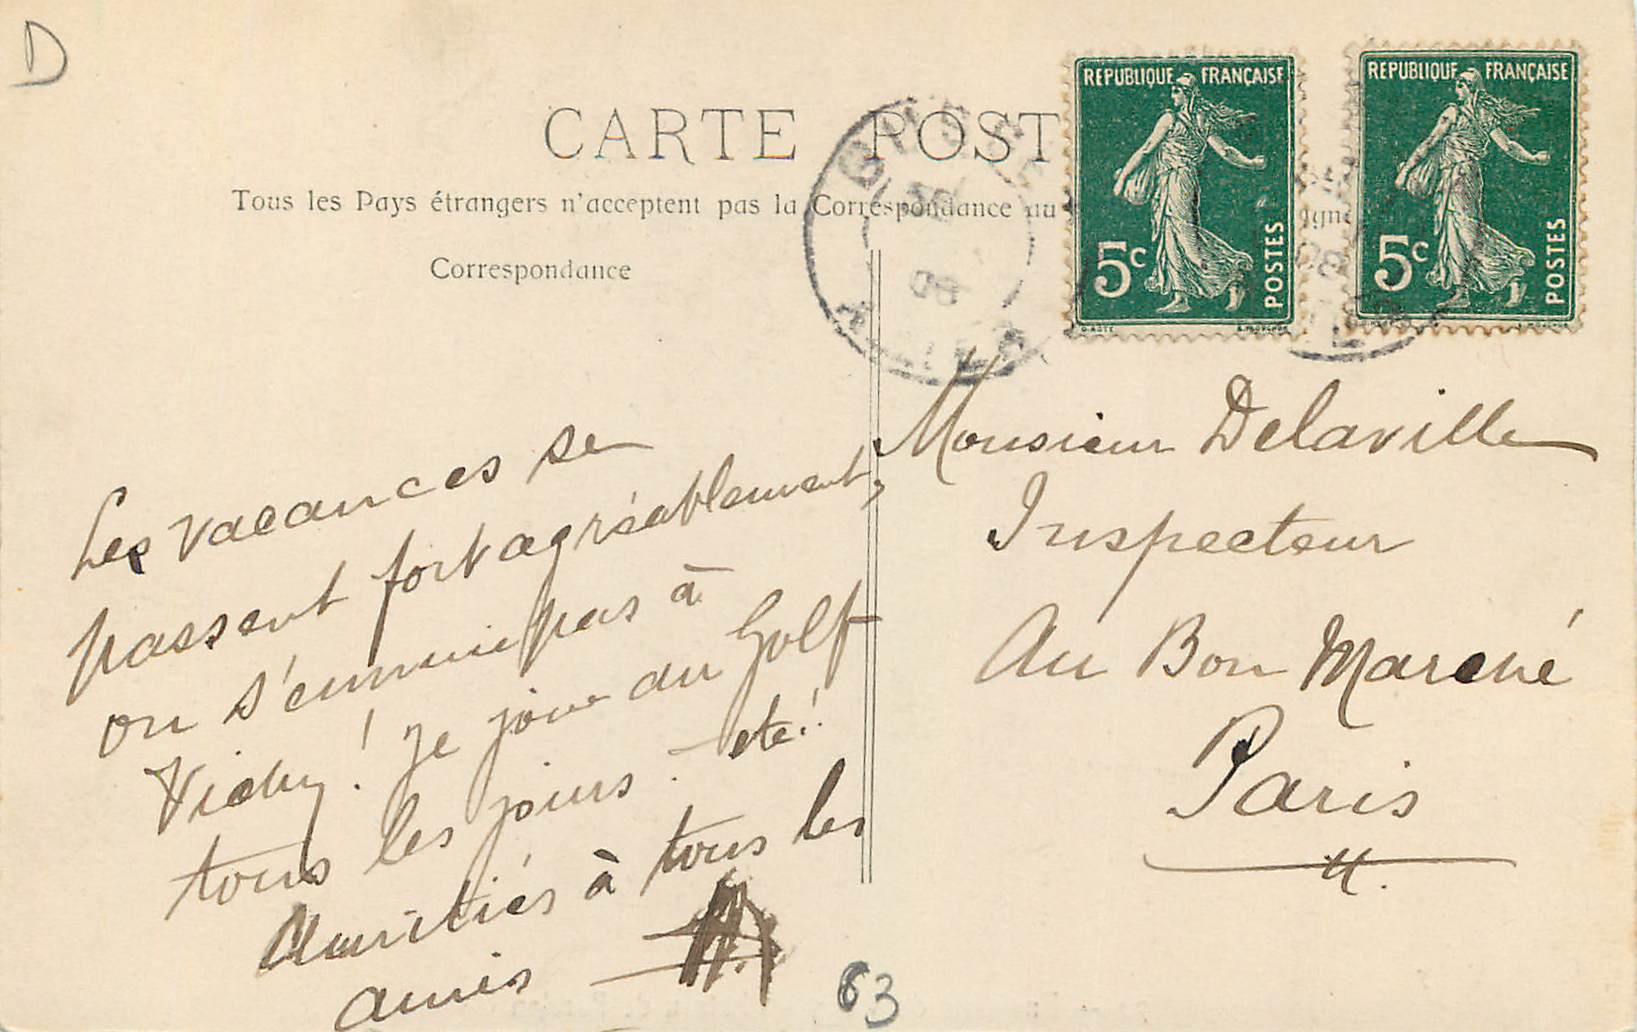 D
CARTE POST
Tous les Pays étrangers n'acceptent pas la Correspondance au
Correspondance
REPUBLIQUE FRANÇAISE
5c
POSTES
REPUBLIQUE FRANÇAISE
5c
POSTES
08
Les vacances se
passent fort agréablement,
on s'ennuie pas à
Vichy ! Je joue au Golf
tous les jours - etc !
Amitiés à tous les
amis
63
Monsieur Delaville
Inspecteur
Au Bon Marché
Paris